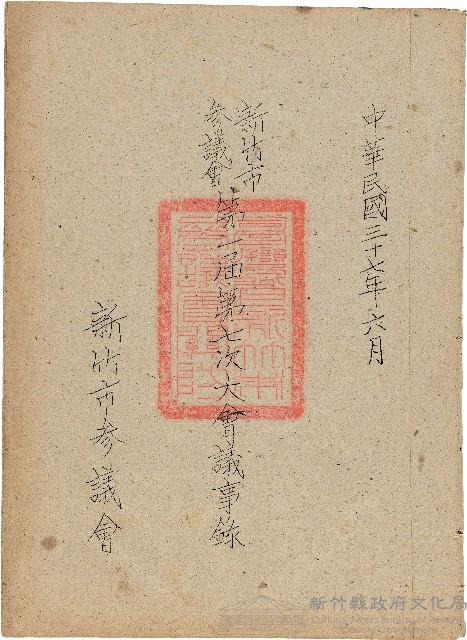 中華民國三十七年六月
新竹市
參議會
第一屆第七次大會議事錄
新竹市參議會
新竹縣政府文化局